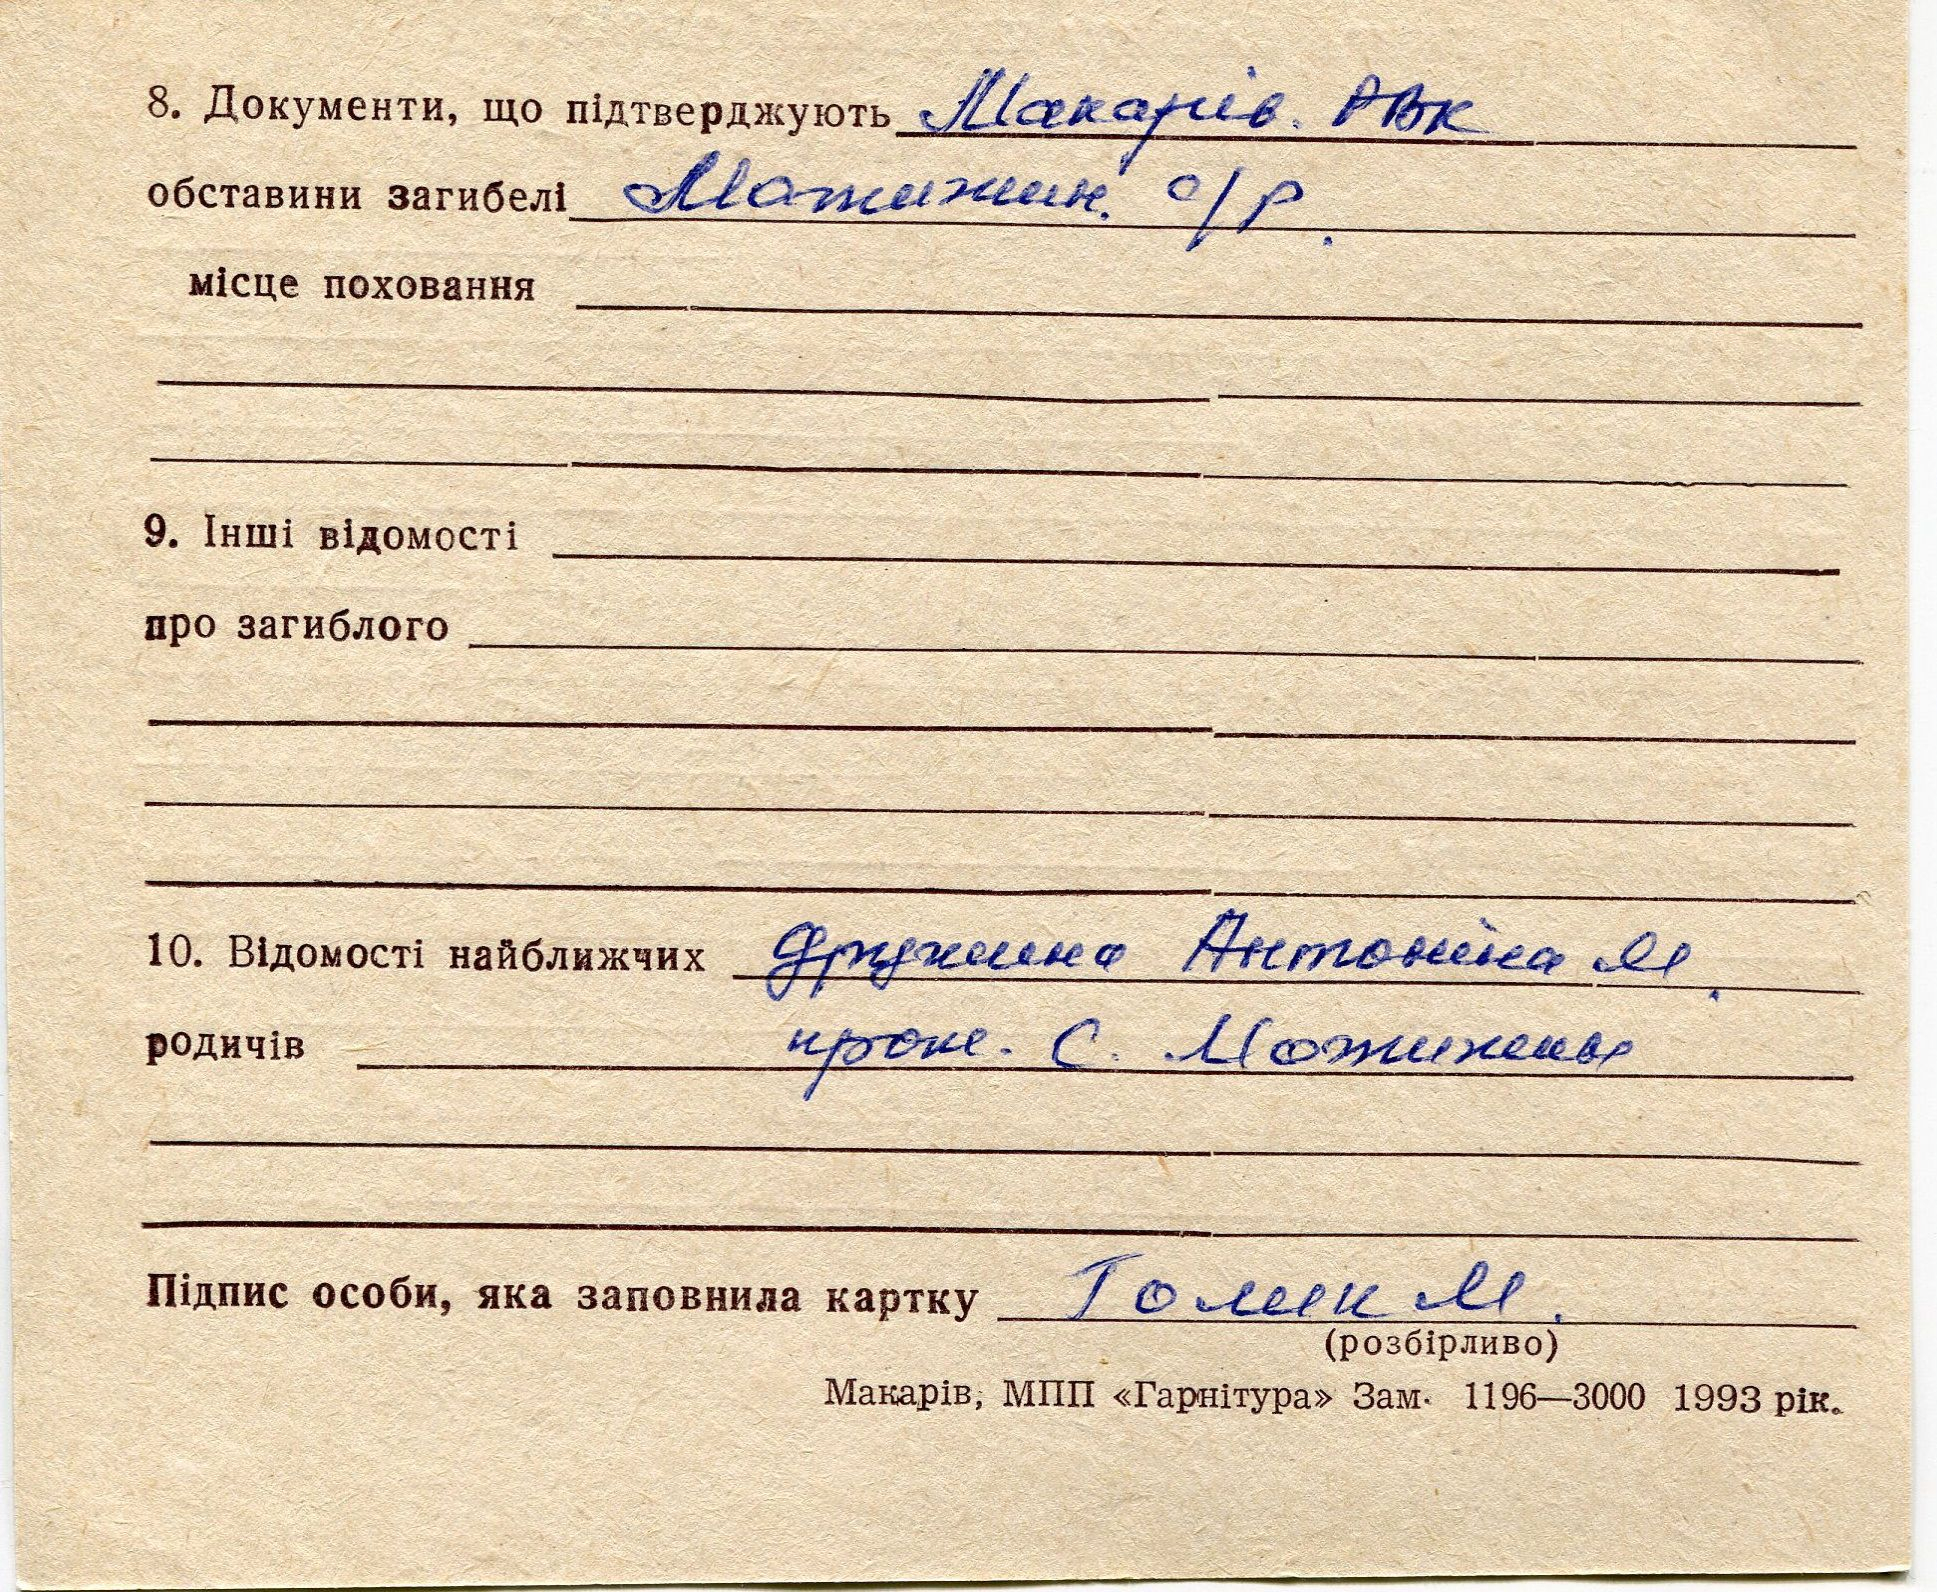 8. Документи, що підтверджують Макарів. РВК
обставини загибелі Мотижин. с/р.
місце поховання
9. Інші відомості
про загиблого
10. Відомості найближчих дружина Антоніна М.
родичів прож. с. Мотижині
Підпис особи, яка заповнила картку Голик М.
(розбірливо)
Макарів, МПП «Гарнітура» Зам. 1196—3000 1993 рік.